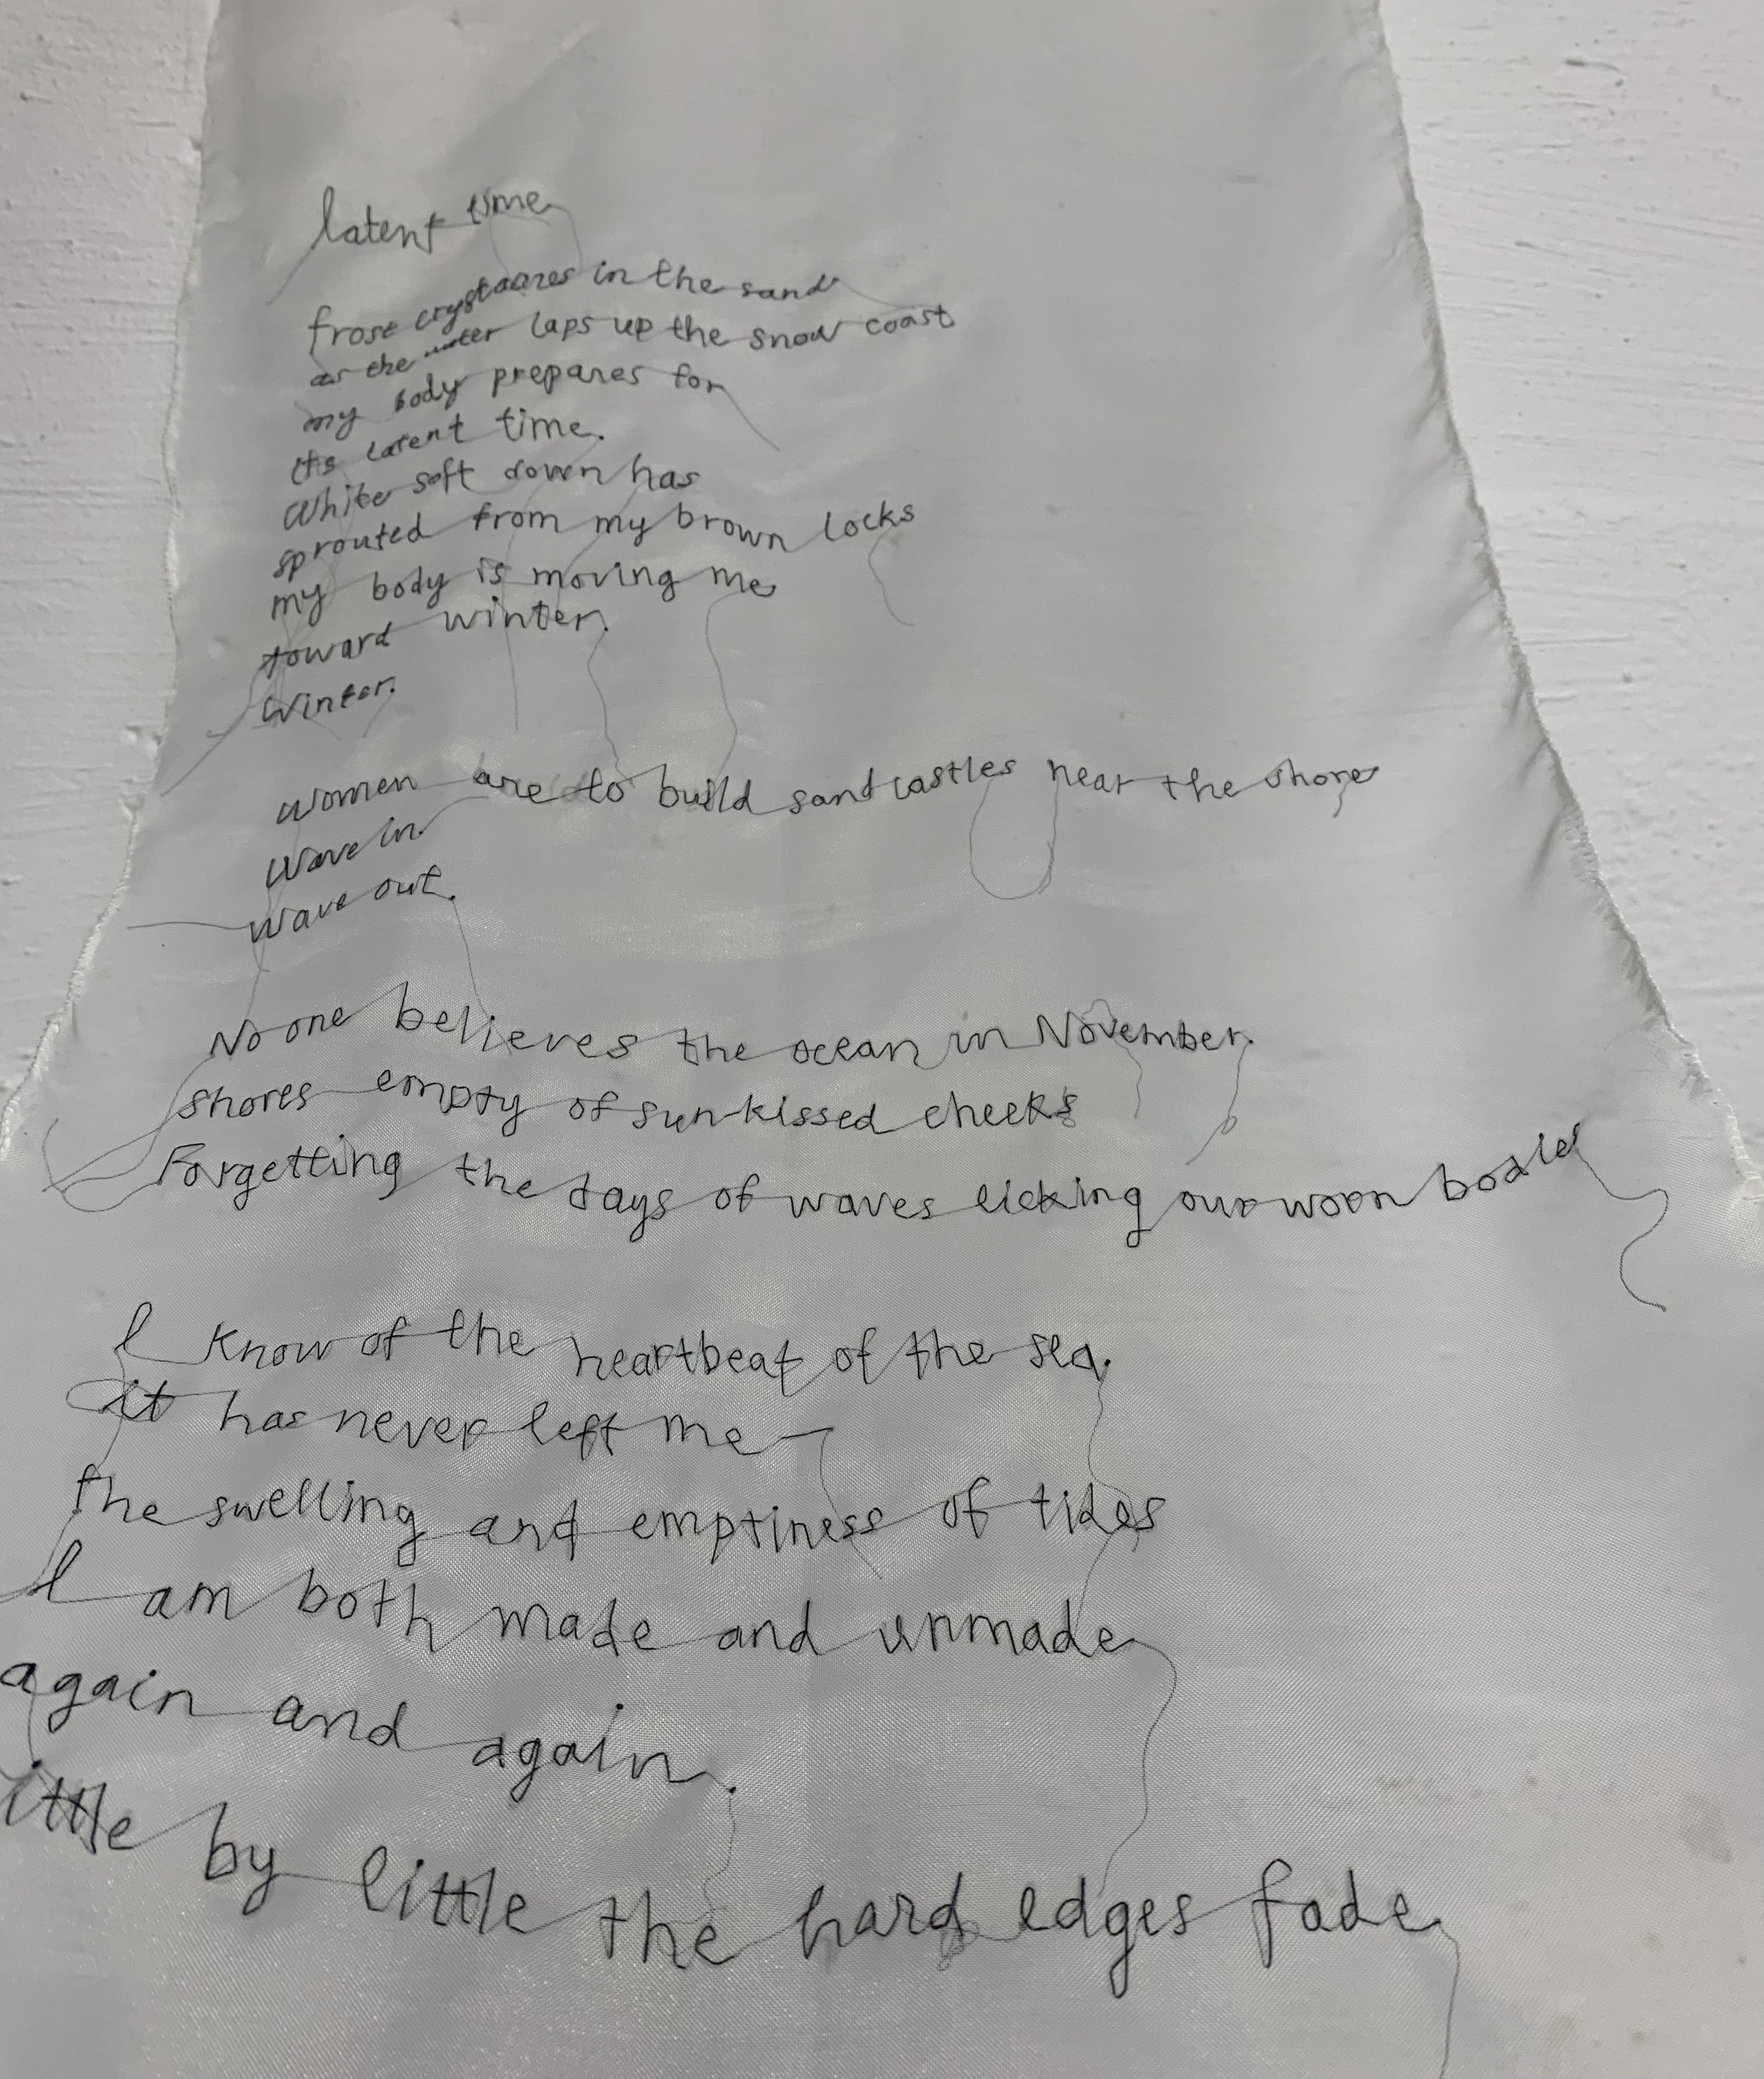 latent time
frost crystaares in the sand
as the water laps up the snow coast
my body prepares for
its latent time.
White soft down has
sprouted from my brown locks
my body is moving me
toward winter.
Winter.
women are to build sandcastles near the shore
Wave in
wave out.
No one believes the ocean in November.
shores empty of sun-kissed cheeks
Forgetting the days of waves licking our worn bodies
I know of the heartbeat of the sea.
it has never left me
the swelling and emptiness of tides
I am both made and unmade
again and again.
ittle by little the hard edges fade